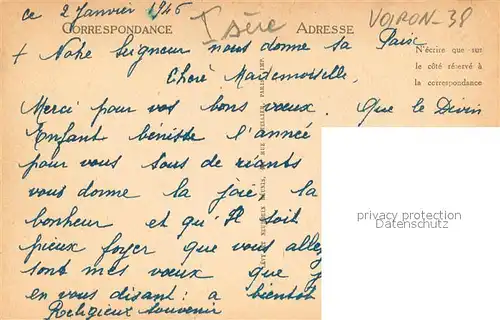 ce 2 Janvier 1946
Isère
VOIRON-38
CORRESPONDANCE
ADRESSE
+ Notre Seigneur nous donne sa Paix
N'écrire que sur
le côté réservé à
la correspondance
Chère Mademoiselle,
Merci pour vos bons vœux. Que le Divin
Enfant bénisse l'année
pour vous sous de riants
vous donne la joie, la
bonheur et qu'Il soit
pieux foyer que vous alle
sont mes vœux que j
en vous disant: a bientôt
Religieux souvenir
privacy protection
Datenschutz